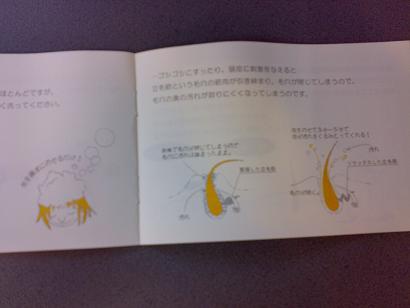 ほとんどですが、
く洗ってください。
泡を頭皮にのせるだけ！
ーゴシゴシにすったり、頭皮に刺激を与えると
立毛筋という毛穴の筋肉が引き締まり、毛穴が閉じてしまうので、
毛穴の奥の汚れが取りにくくなってしまうのです。
刺激で毛穴が閉じてしまうので
毛穴に汚れは詰まったまま。
緊張した立毛筋
汚れ
泡をのせてマッサージで
汚れをくるみとってくれる！
汚れ
リラックスした立毛筋
毛穴が開く